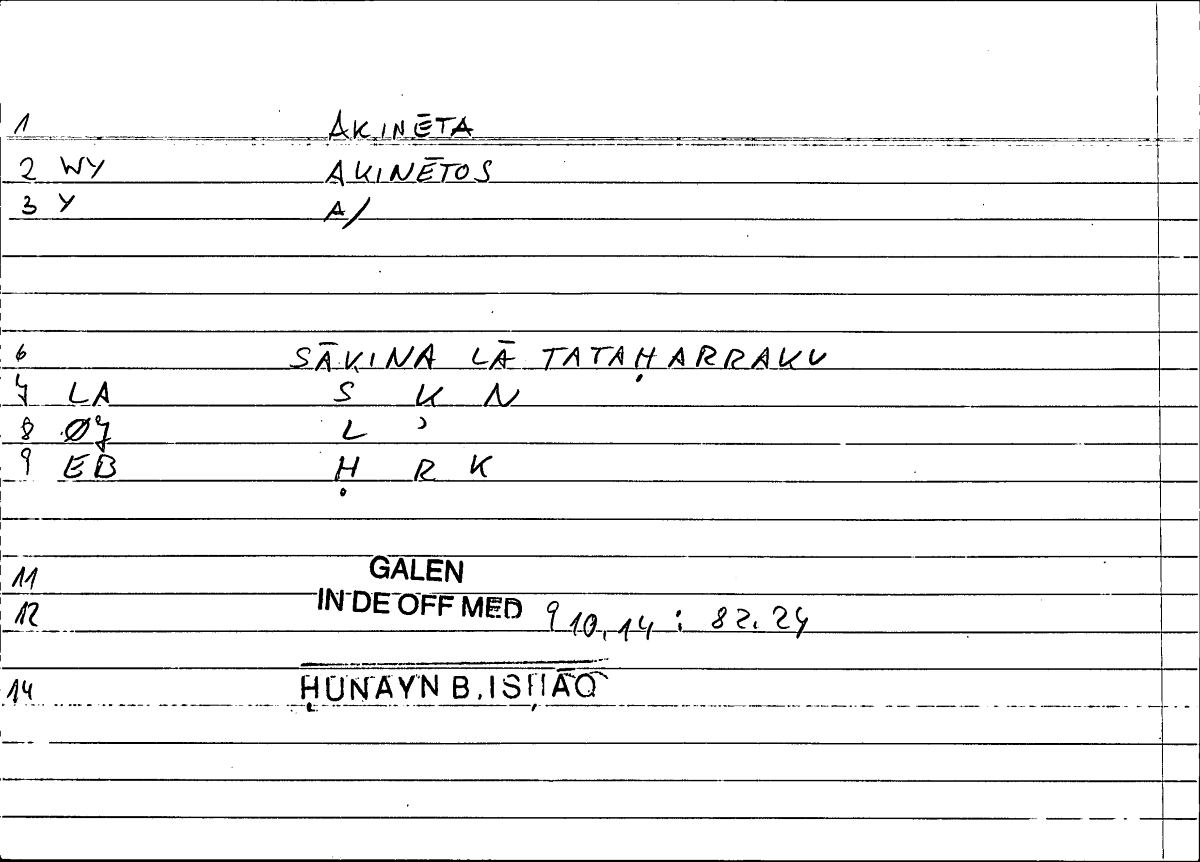 1 AKINĒTA
2 WY AKINĒTOS
3 Y A/
6 SĀKINA LĀ TATAḤARRAKU
7 LA S K N
8 ØJ L ʾ
9 EB Ḥ R K
11 GALEN
12 IN DE OFF MED 9 10.14 : 82.24
14 ḤUNAYN B. ISḤĀQ